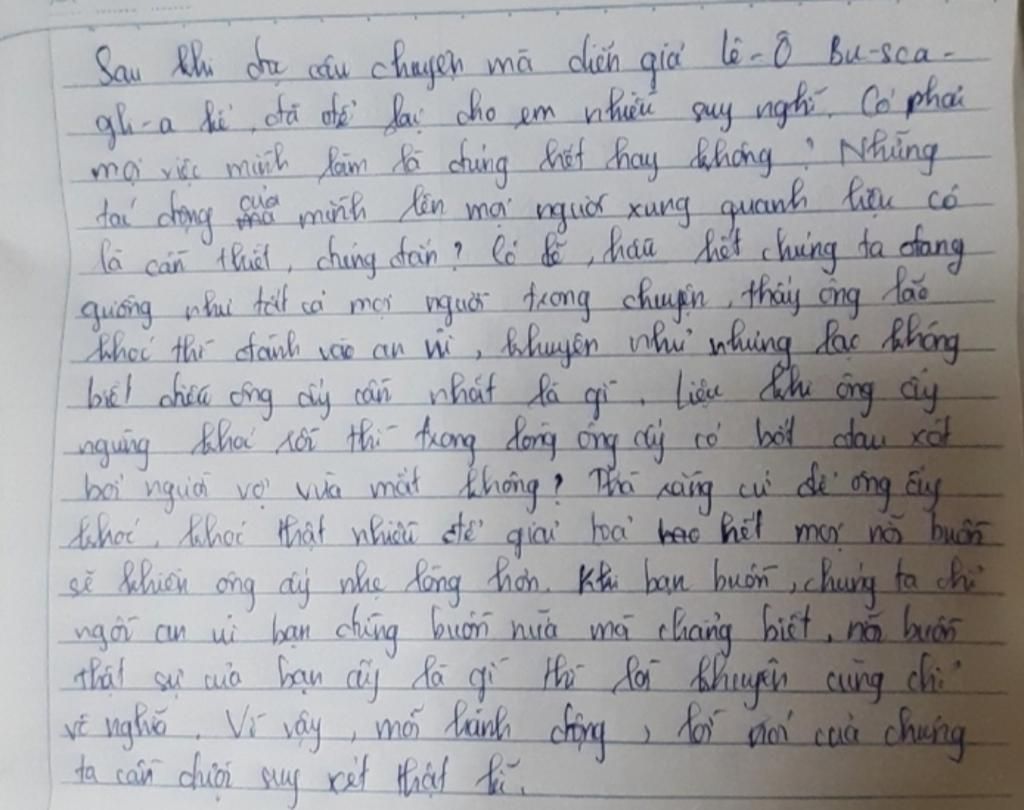 Sau khi đọc câu chuyện mà diễn giả Lê-Ô Bu-sca-
gli-a kể, đã để lại cho em nhiều suy nghĩ. Có phải
mọi việc mình làm là đúng hết hay không? Những
tác động của mình lên mọi người xung quanh liệu có
là cần thiết, đúng đắn? Có lẽ, hầu hết chúng ta đang
giống như tất cả mọi người trong chuyện, thấy ông lão
khóc thì đánh vào an ủi, khuyên nhủ nhưng lại không
biết điều ông ấy cần nhất là gì. Liệu khi ông ấy
ngừng khóc rồi thì trong lòng ông ấy có bớt đau xót
bởi người vợ vừa mất không? Thà rằng cứ để ông ấy
khóc, khóc thật nhiều để giải toả hết mọi nỗi buồn
sẽ khiến ông ấy nhẹ lòng hơn. Khi bạn buồn, chúng ta chỉ
ngồi an ủi bạn đừng buồn nữa mà chẳng biết, nỗi buồn
thật sự của bạn ấy là gì thì lời khuyên cũng chỉ
vô nghĩa. Vì vậy, mỗi hành động, lời nói của chúng
ta cần được suy xét thật kĩ.